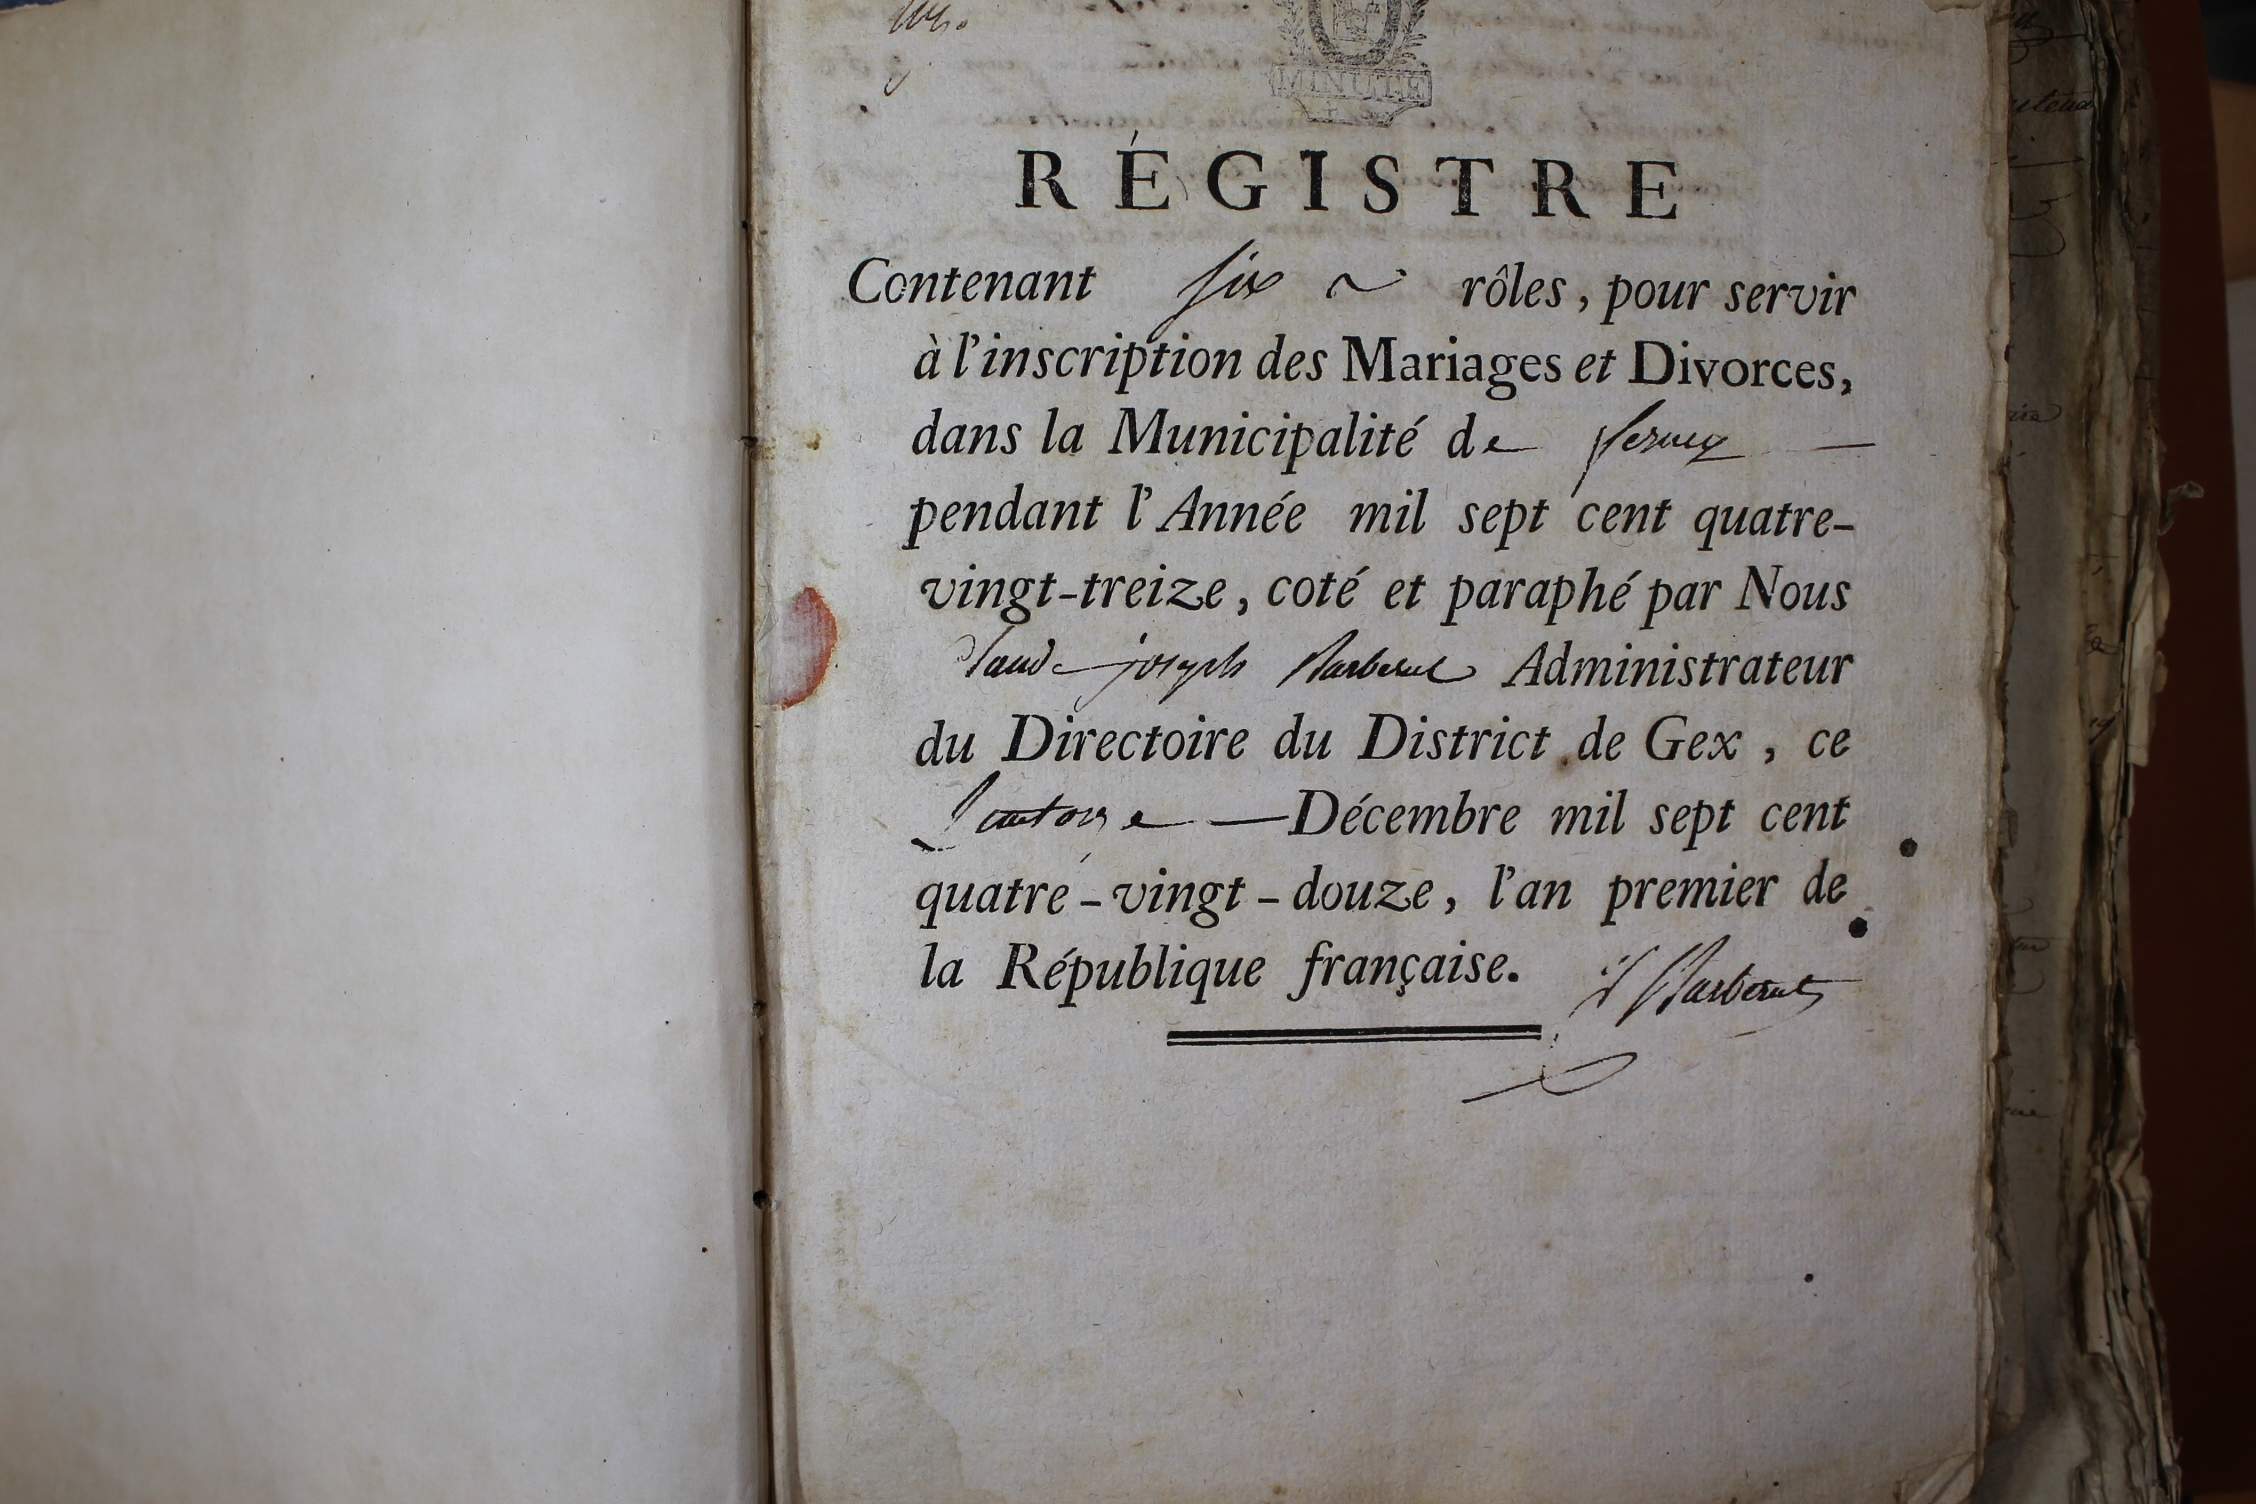 MINUTE
RÉGISTRE
Contenant six ~ rôles, pour servir
à l'inscription des Mariages et Divorces,
dans la Municipalité de fernex —
pendant l'Année mil sept cent quatre-
vingt-treize, coté et paraphé par Nous
Claude joseph Barberat Administrateur
du Directoire du District de Gex, ce
quatorze — Décembre mil sept cent
quatre-vingt-douze, l'an premier de
la République française.
Barberat